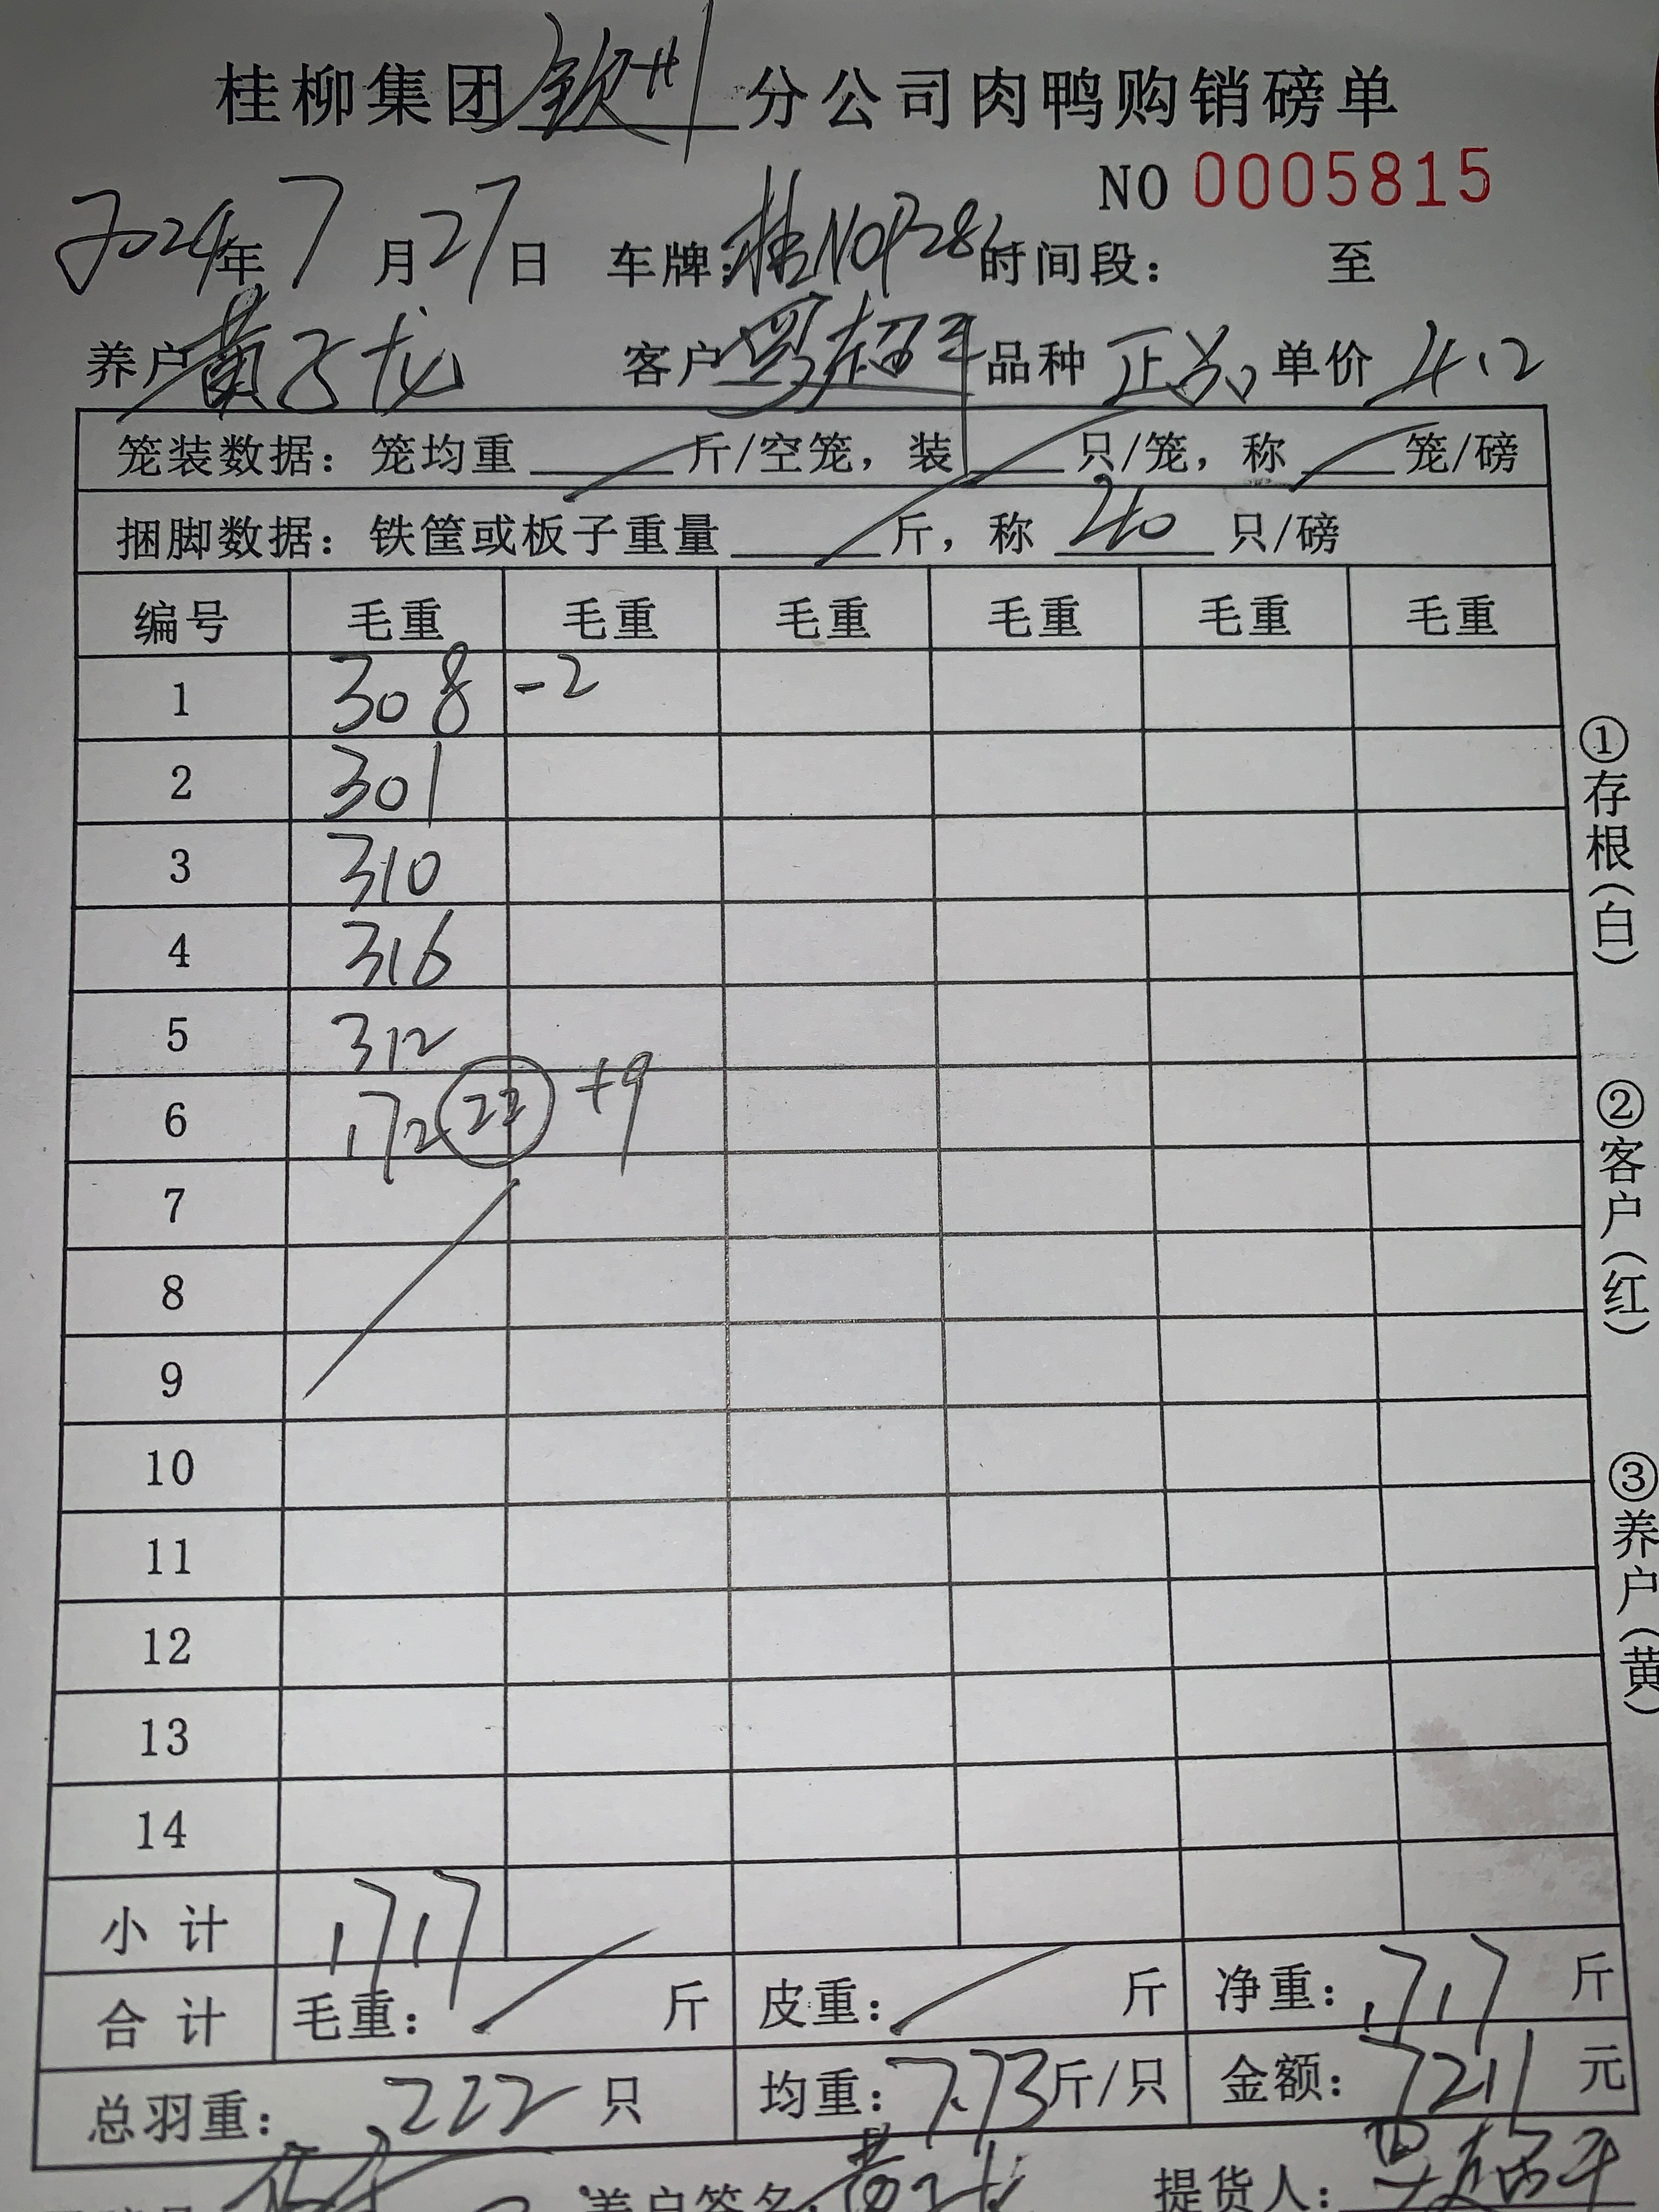 桂柳集团钦州分公司肉鸭购销磅单
NO 0005815
2024年7月27日 车牌: 时间段: 至
养户黄子龙 客户罗超平 品种 单价4.2
笼装数据: 笼均重 斤/空笼, 装 只/笼, 称 笼/磅
捆脚数据: 铁筐或板子重量 斤, 称 40 只/磅
编号 毛重 毛重 毛重 毛重 毛重 毛重
1 308 -2
2 301
3 310
4 316
5 312
6 172 +9
7
8
9
10
11
12
13
14
小计 1717
合计 毛重: 斤 皮重: 斤 净重: 1717 斤
总羽重: 222 只 均重: 7.73斤/只 金额: 7211 元
养户签名: 提货人:
①存根(白)
②客户(红)
③养户(黄)